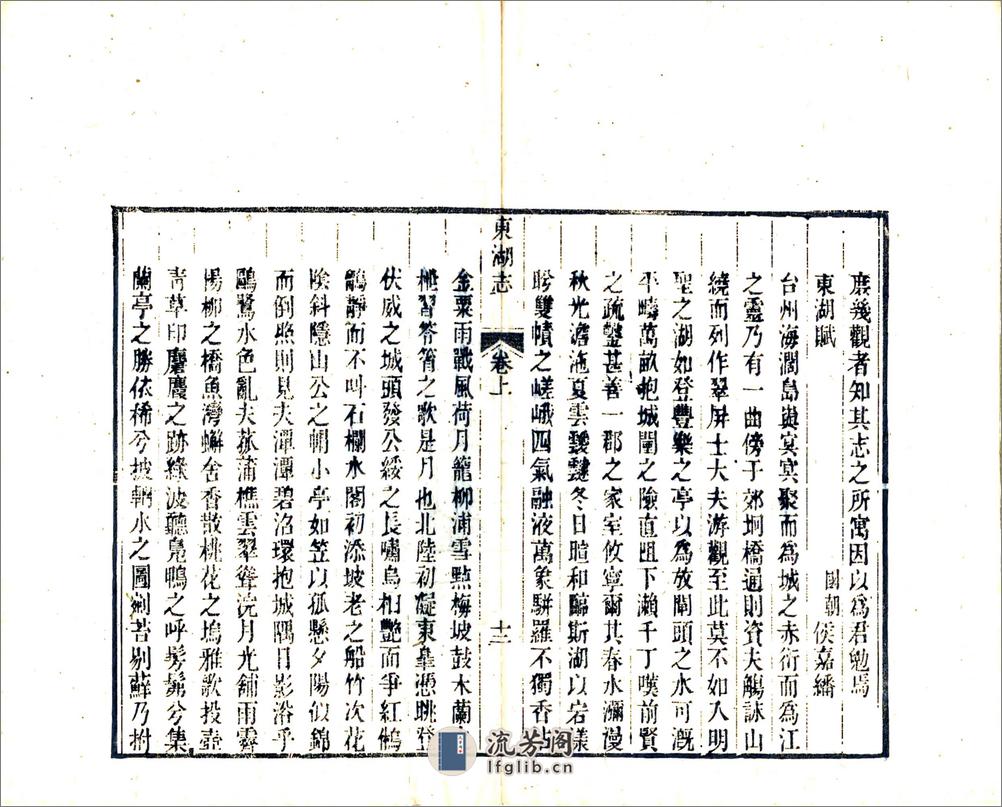 庶幾觀者知其志之所寓因以為君勉焉
東湖賦 國朝 侯嘉繙
台州海濶島與冥冥聚而為城之赤衍而為江
之靈乃有一曲傍于郊坰橋通則資夫觴詠山
繞而列作翠屏士大夫游觀至此莫不如入明
聖之湖如登豐樂之亭以為放閘頭之水可溉
平疇萬畝抱城闉之險直阻下瀨千丁嘆前賢
之疏鑿甚善一郡之家室攸寧爾其春水瀰漫
秋光澹沲夏雲靉靆冬日暄和臨斯湖以岩漾
盻雙幘之嵯峨四氣融液萬象駢羅不獨香
東湖志 卷上 十二
金粟雨戰風荷月籠柳浦雪點梅坡鼓木蘭
習笭箵之歌是月也北陸初凝東皋憑眺登
伏威之城頭發公綏之長嘯烏桕艷而爭紅
鶺靜而不叫石欄水閣初添坡老之船竹次花
陰斜隱山公之轎小亭如笠以孤懸夕陽似錦
而倒照則見夫潭潭碧沼環抱城隅日影浴乎
鷗鷺水色亂夫菰蒲樵雲翠聳浣月光舖雨霽
楊柳之橋魚灣蠏舍香散桃花之塢雅歌投壺
靑草印麌麌之跡綠波聽鳧鴨之呼髣髴兮集
蘭亭之勝依稀兮披輞水之圖剜苔剔蘚乃拊
流芳阁
lfglib.cn